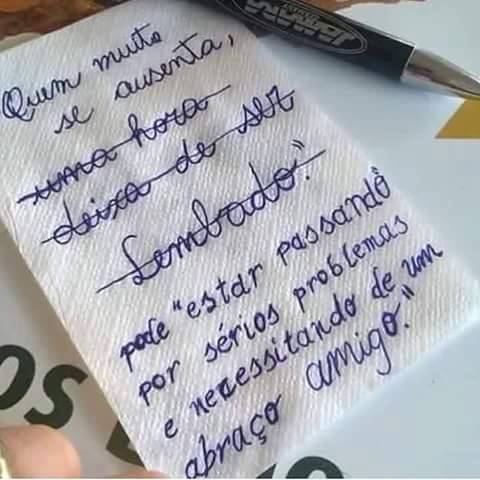 Quem muito
se ausenta,
uma hora
deixa de ser
Lembado."
pode "estar passando
por sérios problemas
e necessitando de um
abraço amigo."